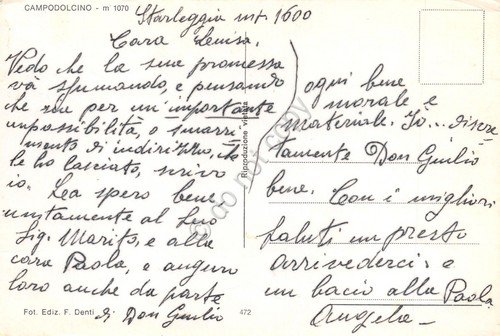 CAMPODOLCINO - m 1070
Starleggia mt. 1600
Cara Luisa,
Vedo che la sua promessa
và sfumando, e pensando
che sia per un'importante
impossibilità, o smarri
mento di indirizzo, che
le ho lasciato, scrivo
io. La spero bene
unitamente al Suo
Sig. Marito, e alla
cara Paola, e auguro
loro anche da parte
di Don Giulio
ogni bene
morale e
materiale. Io... discre
tamente Don Giulio
bene. Con i migliori
saluti un presto
arrivederci e
un bacio alla Paola
Angela
Riproduzione vietata
do not copy
Fot. Ediz. F. Denti
472